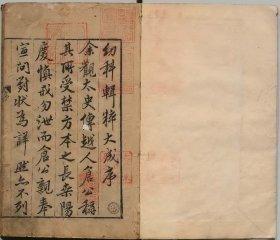 幼科輯粹大成序
余觀太史傳越人倉公稱
其所受禁方本之長桑陽
慶慎我勿泄而倉公親奉
宣問對狀為詳 然亦不列